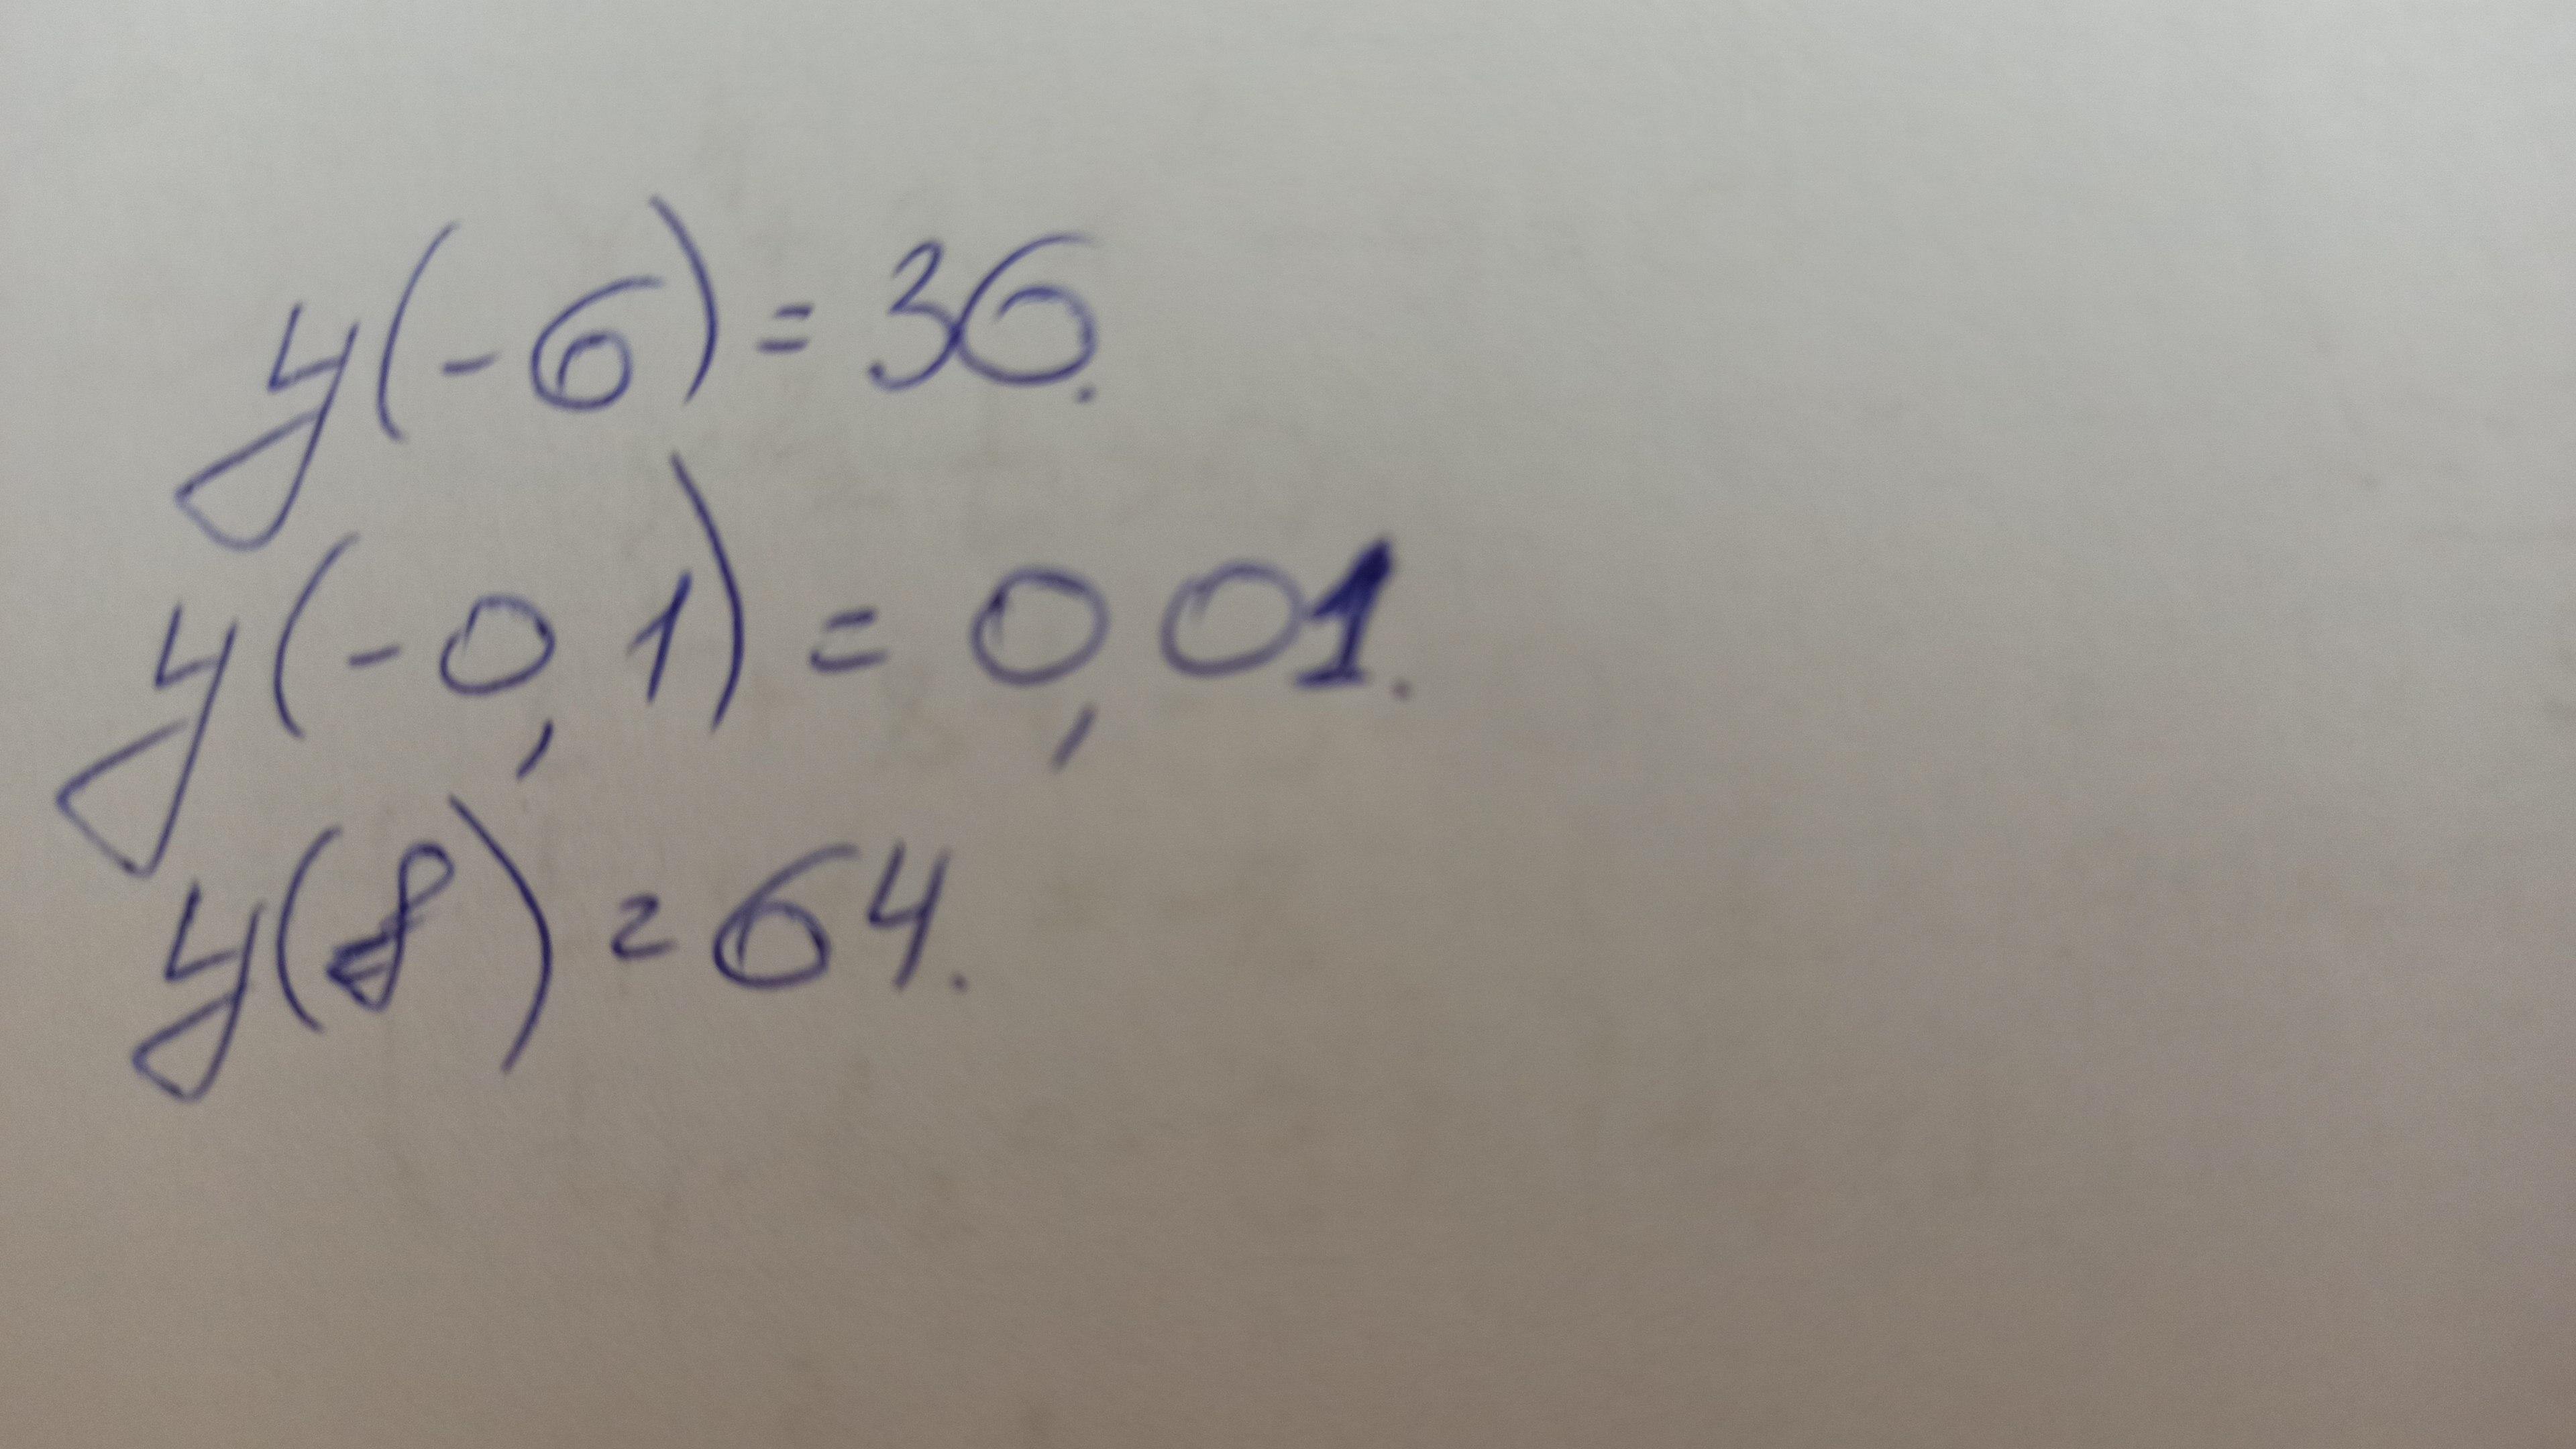 y(-6) = 36.
y(-0,1) = 0,01.
y(8) = 64.